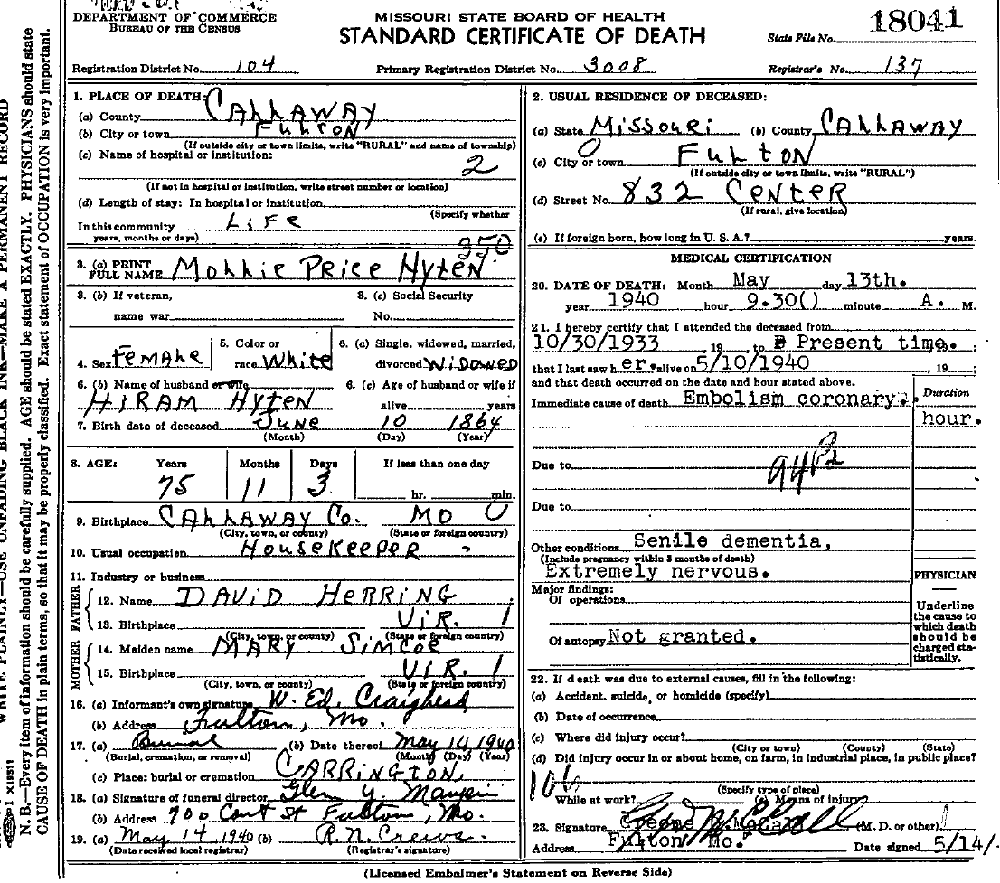 DEPARTMENT OF COMMERCE
BUREAU OF THE CENSUS
MISSOURI STATE BOARD OF HEALTH
STANDARD CERTIFICATE OF DEATH
State File No. 18041
Registration District No. 104
Primary Registration District No. 3008
Registrar's No. 137
WRITE PLAINLY—USE UNFADING BLACK INK—MAKE A PERMANENT RECORD
N. B.—Every item of information should be carefully supplied. AGE should be stated EXACTLY. PHYSICIANS should state
CAUSE OF DEATH in plain terms, so that it may be properly classified. Exact statement of OCCUPATION is very important.
1. PLACE OF DEATH:
(a) County CALLAWAY
(b) City or town Fulton
(If outside city or town limits, write "RURAL" and name of township)
(c) Name of hospital or institution:
2
(If not in hospital or institution, write street number or location)
(d) Length of stay: In hospital or institution
(Specify whether
In this community LIFE
years, months or days)
350
3. (a) PRINT FULL NAME Mollie Price Hyten
3. (b) If veteran, name war
3. (c) Social Security No.
4. Sex Female
5. Color or race White
6. (a) Single, widowed, married, divorced Widowed
6. (b) Name of husband or wife
HIRAM Hyten
6. (c) Age of husband or wife if alive years
7. Birth date of deceased June 10 1864
(Month) (Day) (Year)
8. AGE: Years Months Days If less than one day
75 11 3 hr. min.
9. Birthplace CALLAWAY Co. MO 0
(City, town, or county) (State or foreign country)
10. Usual occupation Housekeeper -
11. Industry or business
FATHER
12. Name DAVID HERRING
13. Birthplace VIR. 1
(City, town, or county) (State or foreign country)
MOTHER
14. Maiden name MARY SIMCOE
15. Birthplace VIR. 1
(City, town, or county) (State or foreign country)
16. (a) Informant's own signature W. Ed. Craighead
(b) Address Fulton, Mo.
17. (a) Burial (b) Date thereof May 14 1940
(Burial, cremation, or removal) (Month) (Day) (Year)
(c) Place: burial or cremation CARRINGTON
18. (a) Signature of funeral director Glen Y. Maupin
(b) Address 700 Court St Fulton, Mo.
19. (a) May 14 1940 (b) R. N. Crews
(Date received local registrar) (Registrar's signature)
2. USUAL RESIDENCE OF DECEASED:
(a) State Missouri (b) County CALLAWAY
(c) City or town Fulton
(If outside city or town limits, write "RURAL")
(d) Street No. 832 CENTER
(If rural, give location)
(e) If foreign born, how long in U. S. A.? years.
MEDICAL CERTIFICATION
20. DATE OF DEATH: Month May day 13th.
year 1940 hour 9.30() minute A. M.
21. I hereby certify that I attended the deceased from
10/30/1933 19 to Present time.
that I last saw her alive on 5/10/1940 19
and that death occurred on the date and hour stated above.
Immediate cause of death Embolism coronary.
Duration
hour.
Due to
Due to
Other conditions Senile dementia,
(Include pregnancy within 3 months of death)
Extremely nervous.
Major findings:
Of operations
Of autopsy Not granted.
PHYSICIAN
Underline the cause to which death should be charged statistically.
22. If death was due to external causes, fill in the following:
(a) Accident, suicide, or homicide (specify)
(b) Date of occurrence
(c) Where did injury occur?
(City or town) (County) (State)
(d) Did injury occur in or about home, on farm, in industrial place, in public place?
(Specify type of place)
While at work? (e) Means of injury
23. Signature (M. D. or other)
Address Fulton Mo. Date signed 5/14/
(Licensed Embalmer's Statement on Reverse Side)